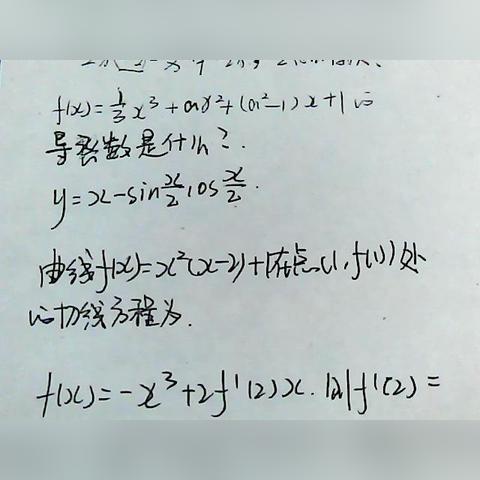 f(x)=\frac{1}{3}x^3+ax^2+(a^2-1)x+1的
导函数是什么?.
y=x-sin\frac{x}{2}cos\frac{x}{2}.
曲线f(x)=x^2(x-2)+1在点(1,f(1))处
的切线方程为.
f(x)=-x^3+2f'(2)x.则f'(2)=